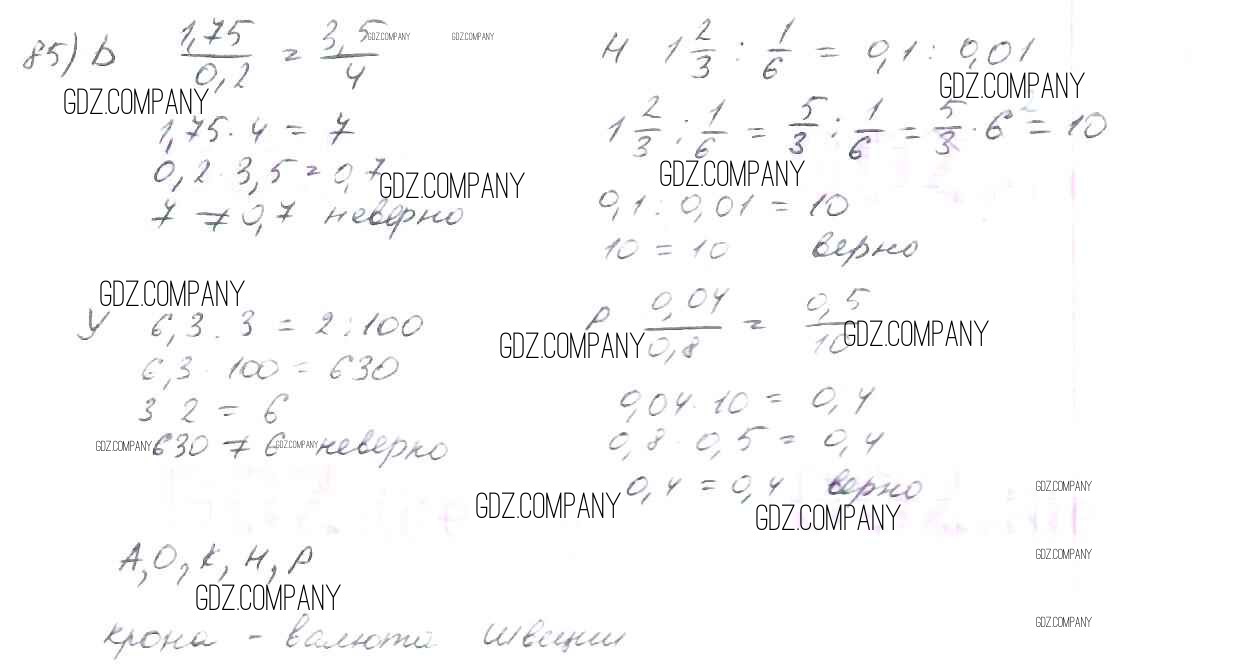 85) Ь 1,75/0,2 = 3,5/4
GDZ.COMPANY GDZ.COMPANY
GDZ.COMPANY
1,75 · 4 = 7
0,2 · 3,5 = 0,7
GDZ.COMPANY
7 ≠ 0,7 неверно
Н 1 2/3 : 1/6 = 0,1 : 0,01
GDZ.COMPANY
1 2/3 : 1/6 = 5/3 : 1/6 = 5/3 · 6 2 = 10
GDZ.COMPANY
0,1 : 0,01 = 10
10 = 10 верно
GDZ.COMPANY
У 6,3 : 3 = 2 : 100
6,3 · 100 = 630
3 2 = 6
GDZ.COMPANY 630 ≠ 6 GDZ.COMPANY неверно
Р 0,04/0,8 = 0,5/10
GDZ.COMPANY GDZ.COMPANY
0,04 · 10 = 0,4
0,8 · 0,5 = 0,4
0,4 = 0,4 верно
GDZ.COMPANY
GDZ.COMPANY
GDZ.COMPANY
А, О, К, Н, Р
GDZ.COMPANY
GDZ.COMPANY
крона - валюта Швеции
GDZ.COMPANY